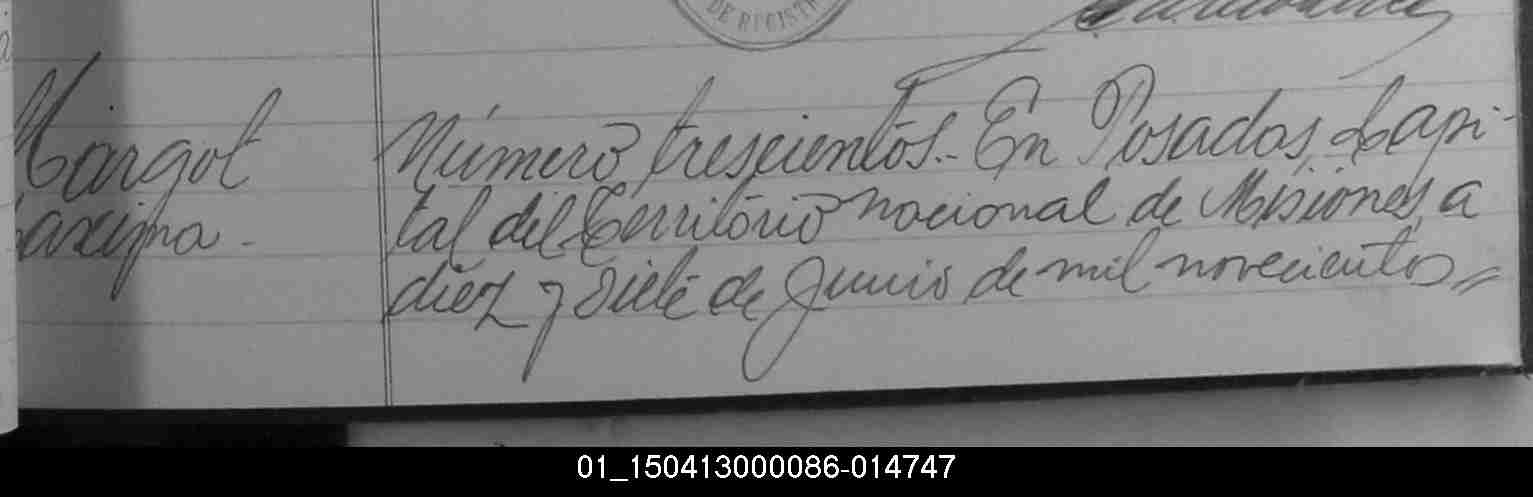 DE REGISTR
Margot
Maxima.
Número trescientos.- En Posadas, Capi-
tal del Territorio nacional de Misiones, a
diez y siete de Junio de mil novecientos
01_150413000086-014747